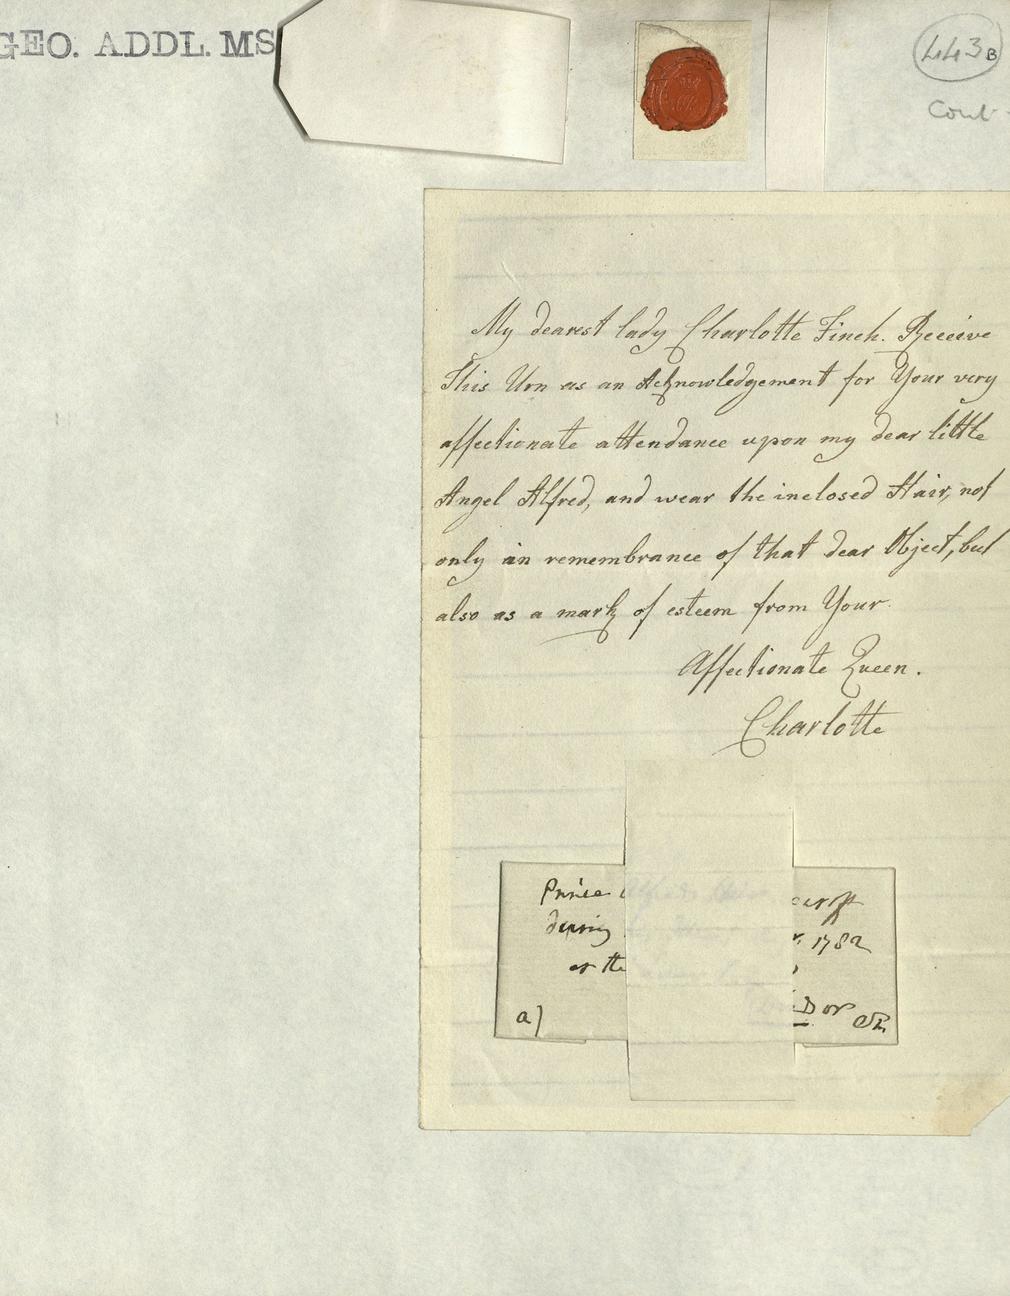 GEO. ADDL. MS
443B
Cont
My dearest lady Charlotte Finch. Receive
This Urn as an Acknowledgement for Your very
affectionate attendance upon my dear little
Angel Alfred, and wear the inclosed Hair, not
only in remembrance of that dear Object, but
also as a mark of esteem from Your
Affectionate Queen.
Charlotte
Prince
during 1782
at the
a)